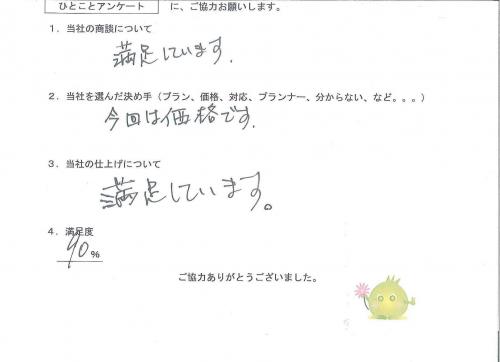 ひとことアンケート に、ご協力お願いします。
1．当社の商談について
満足しています.
2．当社を選んだ決め手（プラン、価格、対応、プランナー、分からない、など。。。）
今回は価格です.
3．当社の仕上げについて
満足しています。
4．満足度
90%
ご協力ありがとうございました。